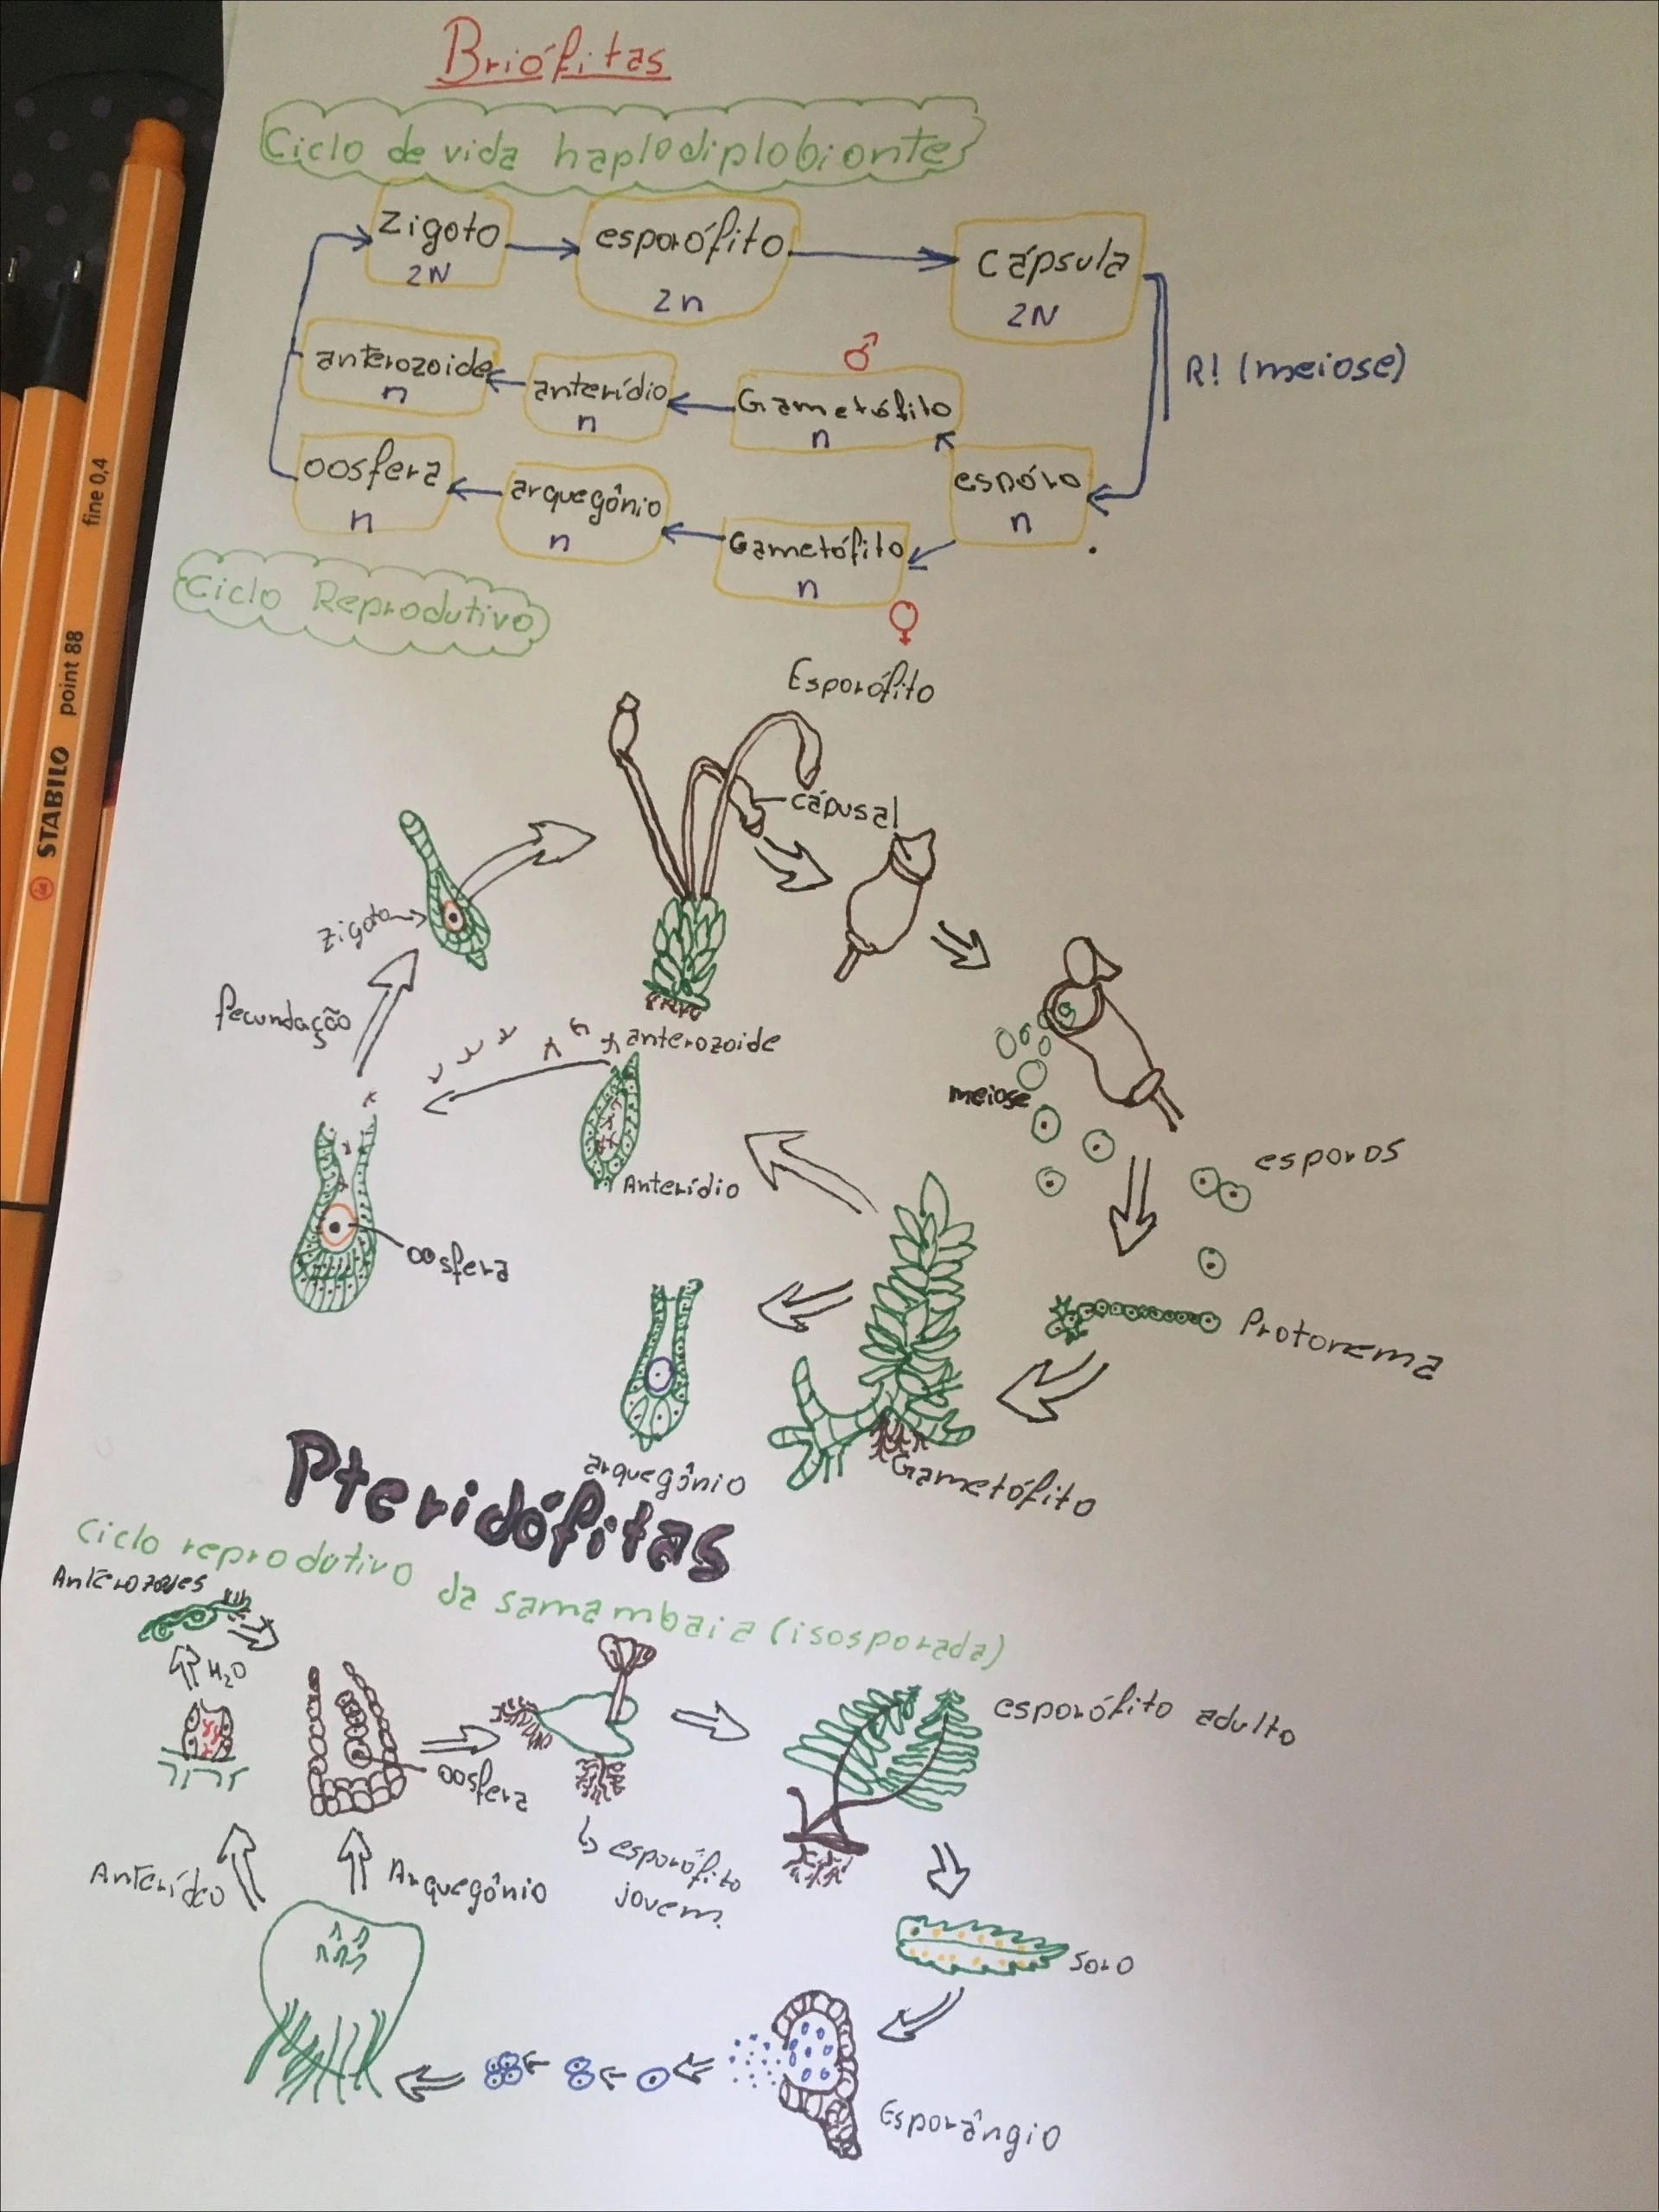 Briófitas
Ciclo de vida haplodiplobionte
Zigoto
2N
esporófito
2n
cápsula
2N
R! (meiose)
anterozoide
n
anterídio
n
♂
Gametófito
n
oosfera
n
arquegônio
n
Gametófito
n
♀
espóro
n
Ciclo Reprodutivo
Esporófito
cápusal
Zigoto
fecundação
anterozoide
Anterídio
meiose
esporos
oosfera
Protonema
arquegônio
Gametófito
Pteridófitas
Ciclo reprodutivo da samambaia (isosporada)
H₂O
oosfera
esporófito adulto
esporófito
jovem
Anterídeo
Arquegônio
soro
Esporângio
STABILO point 88 fine 0,4